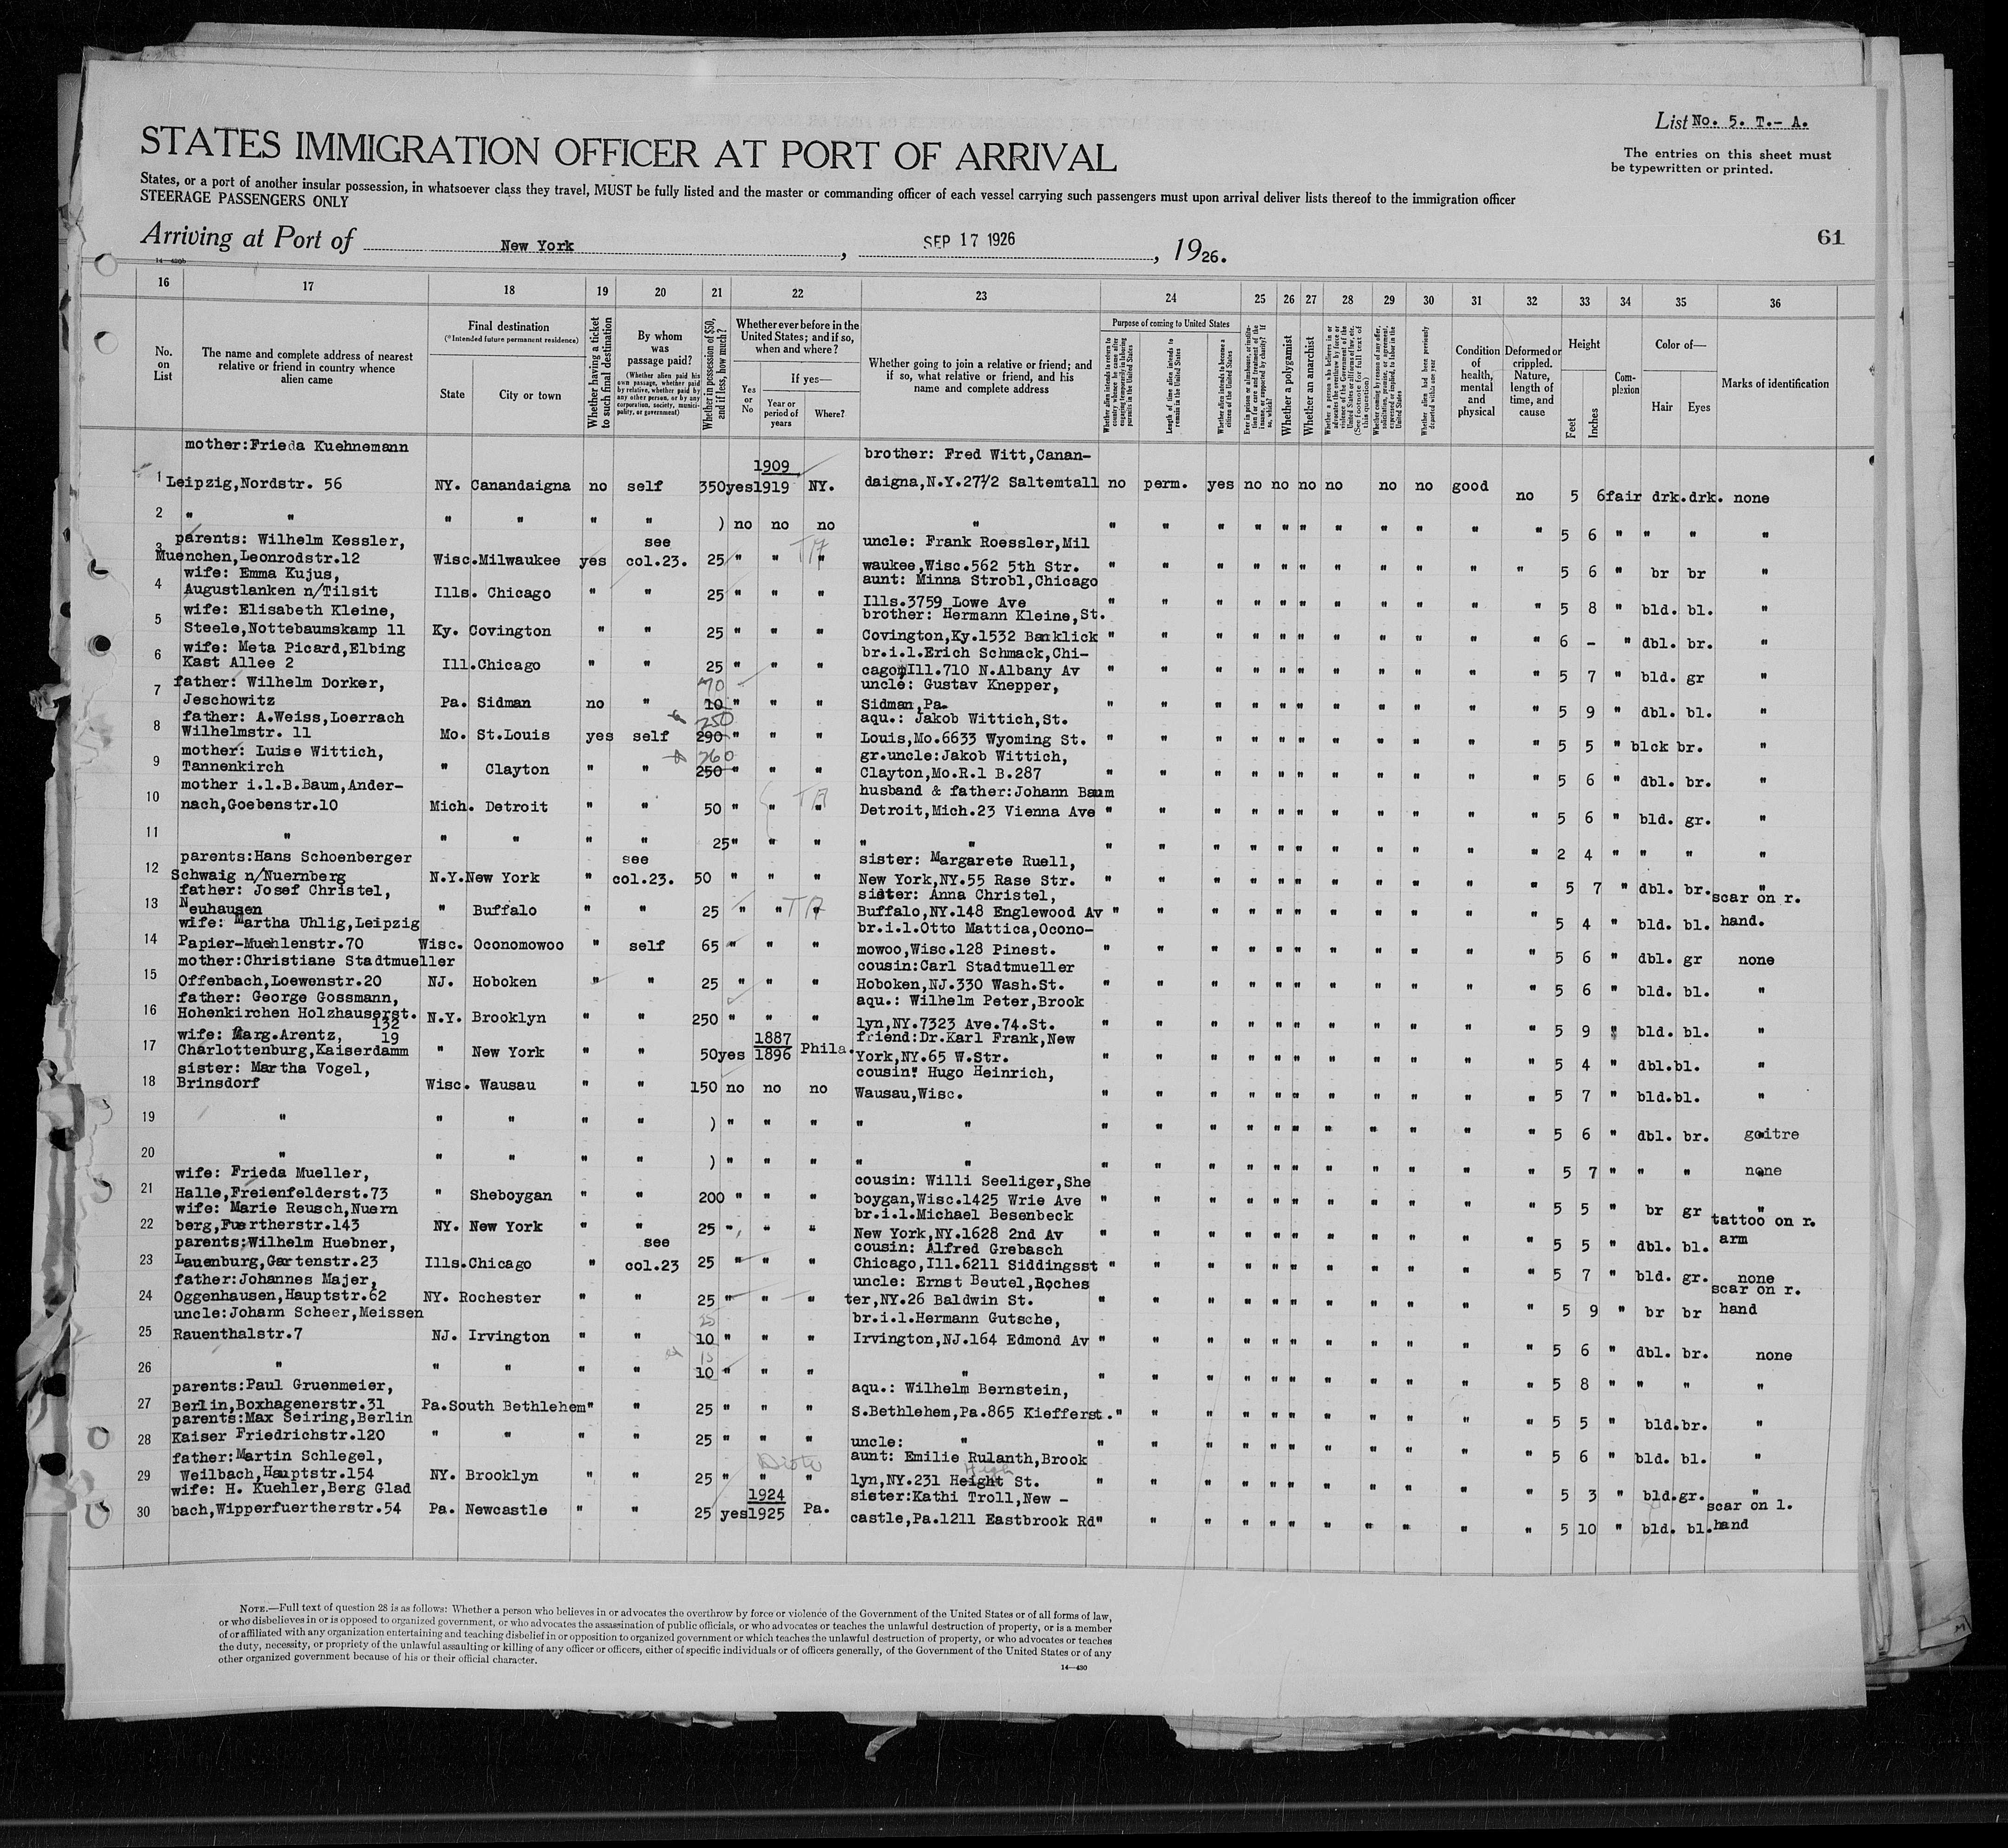 List No. 5. T.- A.
STATES IMMIGRATION OFFICER AT PORT OF ARRIVAL
The entries on this sheet must
be typewritten or printed.
States, or a port of another insular possession, in whatsoever class they travel, MUST be fully listed and the master or commanding officer of each vessel carrying such passengers must upon arrival deliver lists thereof to the immigration officer
STEERAGE PASSENGERS ONLY
Arriving at Port of New York, SEP 17 1926, 1926.
61
16 17 18 19 20 21 22 23 24 25 26 27 28 29 30 31 32 33 34 35 36
No. on List
The name and complete address of nearest relative or friend in country whence alien came
Final destination
(*Intended future permanent residence)
State
City or town
Whether having a ticket to such final destination
By whom was passage paid?
(Whether alien paid his own passage, whether paid by relative, whether paid by any other person, or by any corporation, society, municipality, or government)
Whether in possession of $50, and if less, how much?
Whether ever before in the United States; and if so, when and where?
Yes or No
If yes—
Year or period of years
Where?
Whether going to join a relative or friend; and if so, what relative or friend, and his name and complete address
Purpose of coming to United States
Length of time alien intends to remain in the United States
Whether alien intends to become a citizen of the United States
Whether a polygamist
Whether an anarchist
Condition of health, mental and physical
Deformed or crippled. Nature, length of time, and cause
Height
Feet
Inches
Complexion
Color of—
Hair
Eyes
Marks of identification
mother:Frieda Kuehnemann 1909 brother: Fred Witt,Canan-
1 Leipzig,Nordstr. 56 NY. Canandaigna no self 350 yes 1919 NY. daigna,N.Y.27½ Saltemtall no perm. yes no no no no no no good no 5 6 fair drk. drk. none
2 " " " " " " ) no no no " " " " " " " " " " " " 5 6 " " " "
parents: Wilhelm Kessler, see uncle: Frank Roessler,Mil
3 Muenchen,Leonrodstr.12 Wisc. Milwaukee yes col.23. 25 " " " waukee,Wisc.562 5th Str. " " " " " " " " " " " 5 6 " br br "
wife: Emma Kujus, aunt: Minna Strobl,Chicago
4 Augustlanken n/Tilsit Ills. Chicago " " 25 " " " Ills.3759 Lowe Ave " " " " " " " " " " " 5 8 " bld. bl. "
wife: Elisabeth Kleine, brother: Hermann Kleine,St.
5 Steele,Nottebaumskamp 11 Ky. Covington " " 25 " " " Covington,Ky.1532 Banklick " " " " " " " " " " " 6 - " dbl. br. "
wife: Meta Picard,Elbing br.i.l.Erich Schmack,Chi-
6 Kast Allee 2 Ill. Chicago " " 25 " " " cago,Ill.710 N.Albany Av " " " " " " " " " " " 5 7 " bld. gr "
father: Wilhelm Dorker, 70 uncle: Gustav Knepper,
7 Jeschowitz Pa. Sidman no " 10 " " " Sidman,Pa. " " " " " " " " " " " 5 9 " dbl. bl. "
father: A.Weiss,Loerrach 250 aqu.: Jakob Wittich,St.
8 Wilhelmstr. 11 Mo. St.Louis yes self 290 " " " Louis,Mo.6633 Wyoming St. " " " " " " " " " " " 5 5 " blck br. "
mother: Luise Wittich, 260 gr.uncle:Jakob Wittich,
9 Tannenkirch " Clayton " " 250 " " " Clayton,Mo.R.1 B.287 " " " " " " " " " " " 5 6 " dbl. br. "
mother i.l.B.Baum,Ander- husband & father:Johann Baum
10 nach,Goebenstr.10 Mich. Detroit " " 50 " " " Detroit,Mich.23 Vienna Ave " " " " " " " " " " " 5 6 " bld. gr. "
11 " " " " " 25 " " " " " " " " " " " " " " " " " 2 4 " " " "
parents:Hans Schoenberger see sister: Margarete Ruell,
12 Schwaig n/Nuernberg N.Y. New York " col.23. 50 " " " New York,NY.55 Rase Str. " " " " " " " " " " " 5 7 " dbl. br. "
father: Josef Christel, sister: Anna Christel, scar on r.
13 Neuhausen " Buffalo " " 25 " " " Buffalo,NY.148 Englewood Av " " " " " " " " " " " 5 4 " bld. bl. hand.
wife: Martha Uhlig,Leipzig br.i.l.Otto Mattica,Ocono-
14 Papier-Muehlenstr.70 Wisc. Oconomowoo " self 65 " " " mowoo,Wisc.128 Pinest. " " " " " " " " " " " 5 6 " dbl. gr none
mother:Christiane Stadtmueller cousin:Carl Stadtmueller
15 Offenbach,Loewenstr.20 NJ. Hoboken " " 25 " " " Hoboken,NJ.330 Wash.St. " " " " " " " " " " " 5 6 " bld. bl. "
father: George Gossmann, aqu.: Wilhelm Peter,Brook
16 Hohenkirchen Holzhauserst. 132 N.Y. Brooklyn " " 250 " " " lyn,NY.7323 Ave.74.St. " " " " " " " " " " " 5 9 " bld. bl. "
wife: Marg.Arentz, 19 1887 friend:Dr.Karl Frank,New
17 Charlottenburg,Kaiserdamm " New York " " 50 yes 1896 Phila. York,NY.65 W.Str. " " " " " " " " " " " 5 4 " dbl. bl. "
sister: Martha Vogel, cousin: Hugo Heinrich,
18 Brinsdorf Wisc. Wausau " " 150 no no no Wausau,Wisc. " " " " " " " " " " " 5 7 " bld. bl. "
19 " " " " " ) " " " " " " " " " " " " " " " " " 5 6 " dbl. br. goitre
20 " " " " " ) " " " " " " " " " " " " " " " " " 5 7 " " " none
wife: Frieda Mueller, cousin: Willi Seeliger,She
21 Halle,Freienfelderst.73 " Sheboygan " " 200 " " " boygan,Wisc.1425 Wrie Ave " " " " " " " " " " " 5 5 " br gr "
wife: Marie Reusch,Nuern br.i.l.Michael Besenbeck tattoo on r.
22 berg,Fuertherstr.143 NY. New York " " 25 " " " New York,NY.1628 2nd Av " " " " " " " " " " " 5 5 " dbl. bl. arm
parents:Wilhelm Huebner, see cousin: Alfred Grebasch
23 Lauenburg,Gartenstr.23 Ills. Chicago " col.23 25 " " " Chicago,Ill.6211 Siddingsst " " " " " " " " " " " 5 7 " bld. gr. none
father:Johannes Majer, uncle: Ernst Beutel,Roches scar on r.
24 Oggenhausen,Hauptstr.62 NY. Rochester " " 25 " " " ter,NY.26 Baldwin St. " " " " " " " " " " " 5 9 " br br hand
uncle:Johann Scheer,Meissen 25 br.i.l.Hermann Gutsche,
25 Rauenthalstr.7 NJ. Irvington " " 10 " " " Irvington,NJ.164 Edmond Av " " " " " " " " " " " 5 6 " dbl. br. none
26 " " " " " 10 " " " " " " " " " " " " " " " " 5 8 " " " "
parents:Paul Gruenmeier, aqu.: Wilhelm Bernstein,
27 Berlin,Boxhagenerstr.31 Pa. South Bethlehem " " 25 " " " S.Bethlehem,Pa.865 Kiefferst. " " " " " " " " " " " 5 5 " bld. br. "
parents:Max Seiring,Berlin
28 Kaiser Friedrichstr.120 " " " " 25 " " " uncle: " " " " " " " " " " " " 5 6 " bld. bl. "
father:Martin Schlegel, aunt: Emilie Rulanth,Brook
29 Weilbach,Hauptstr.154 NY. Brooklyn " " 25 " " " lyn,NY.231 Height St. High " " " " " " " " " " " 5 3 " bld. gr. "
wife: H. Kuehler,Berg Glad 1924 sister:Kathi Troll,New - scar on l.
30 bach,Wipperfuertherstr.54 Pa. Newcastle " " 25 yes 1925 Pa. castle,Pa.1211 Eastbrook Rd " " " " " " " " " " " 5 10 " bld. bl. hand
NOTE.—Full text of question 28 is as follows: Whether a person who believes in or advocates the overthrow by force or violence of the Government of the United States or of all forms of law,
or who disbelieves in or is opposed to organized government, or who advocates the assassination of public officials, or who advocates or teaches the unlawful destruction of property, or is a member
of or affiliated with any organization entertaining and teaching disbelief in or opposition to organized government or which teaches the unlawful destruction of property, or who advocates or teaches
the duty, necessity, or propriety of the unlawful assaulting or killing of any officer or officers, either of specific individuals or of officers generally, of the Government of the United States or of any
other organized government because of his or their official character.
14—430